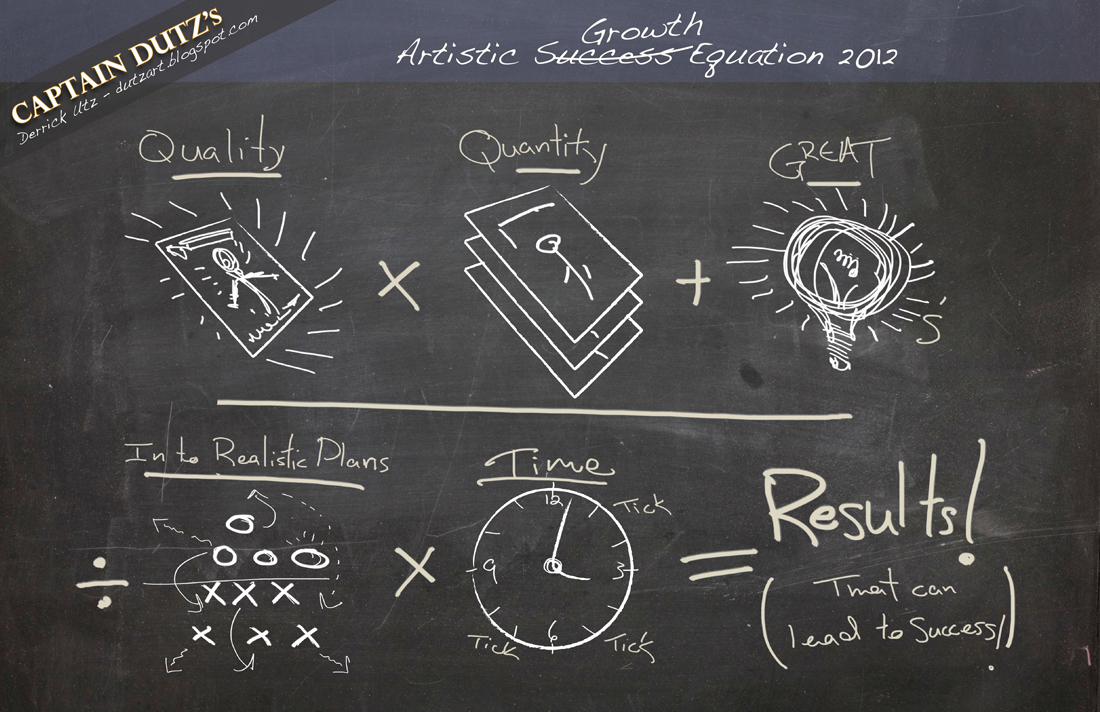 CAPTAIN DUTZ's
Derrick Utz - dutzart.blogspot.com
Growth
Artistic Success Equation 2012
Quality
Quantity
GREAT
X
+
S
In to Realistic Plans
Time
÷
X X X
X X X
X
12
3
6
9
Tick
Tick
Tick
=
Results!
(That can
lead to Success!)